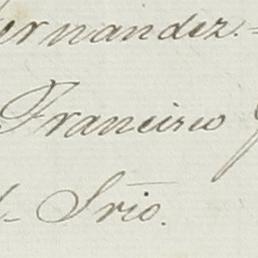 ernandez.=
Francisco
l- Srio.